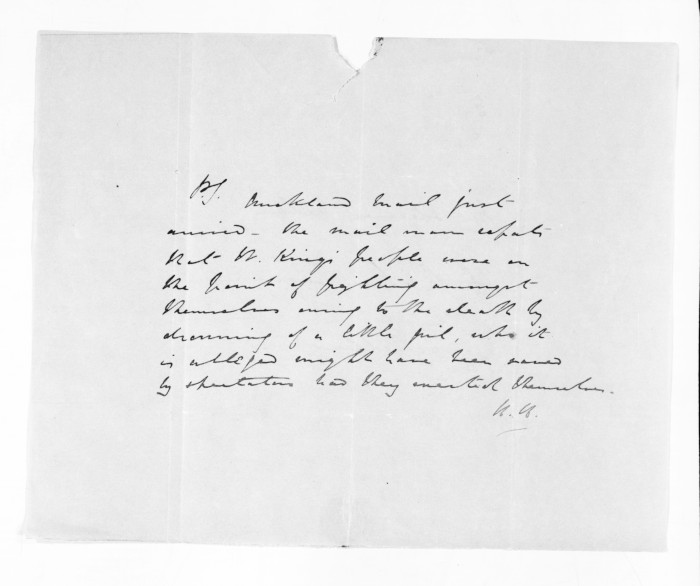 P.S. Auckland mail just
arrived - the mail man reports
that W. Kingi's people were on
the point of fighting amongst
themselves owing to the death by
drowning of a little girl, who it
is alleged might have been saved
by spectators had they exerted themselves.